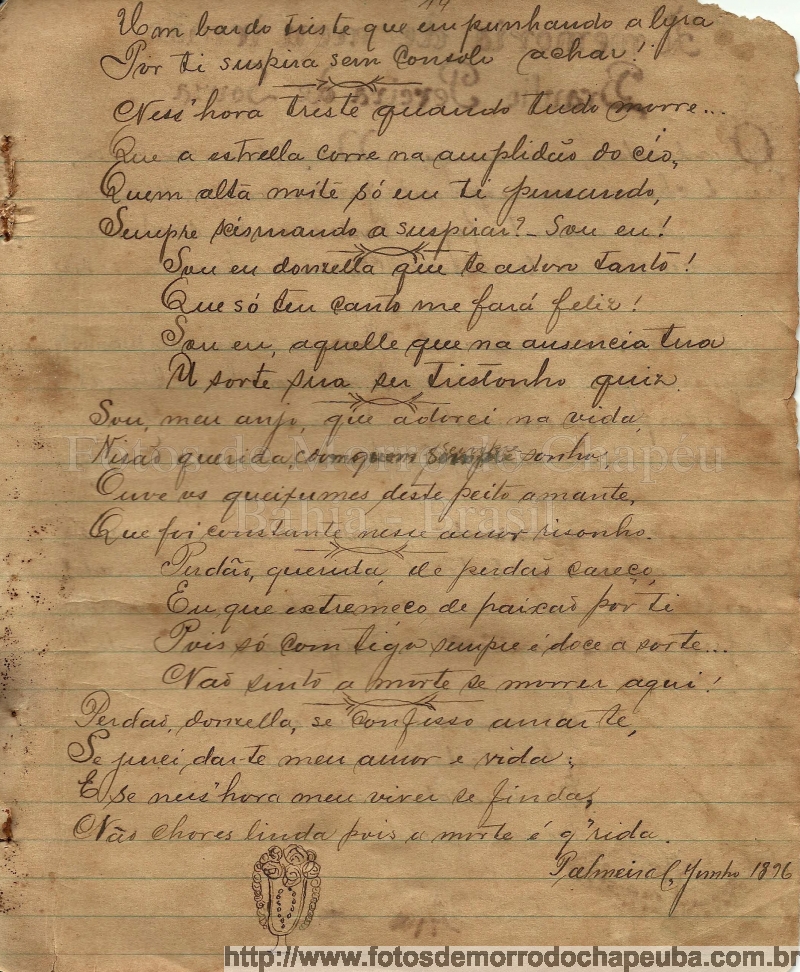 14
Um bardo triste que empunhando a lyra
Por ti suspira sem consolo achar!
Ness'hora triste quando tudo morre...
Que a estrella corre na amplidão do céo,
Quem alta noite só em ti pensando,
Sempre scismando a suspirar? - Sou eu!
Sou eu donzella que te adoro tanto!
Que só teu canto me fará feliz!
Sou eu, aquelle que na ausencia tua
A sorte sua ser tristonho quiz.
Sou, meu anjo, que adorei na vida,
Visão querida, com quem sempre sonho,
Ouve os queixumes deste peito amante,
Que foi constante nesse amor risonho.
Perdão, querida, de perdão careço,
Eu, que extremeço de paixão por ti
Pois só comtigo sempre é doce a sorte...
Não sinto a morte se morrer aqui!
Perdão, donzella, se confisso amar-te,
Se jurei dar-te meu amor e vida;
E se ness'hora meu viver se finda,
Não chores linda pois a morte é q'rida.
Palmeira, Junho 1896
Fotos de Morro do Chapeu
Bahia - Brasil
http://www.fotosdemorrodochapeuba.com.br